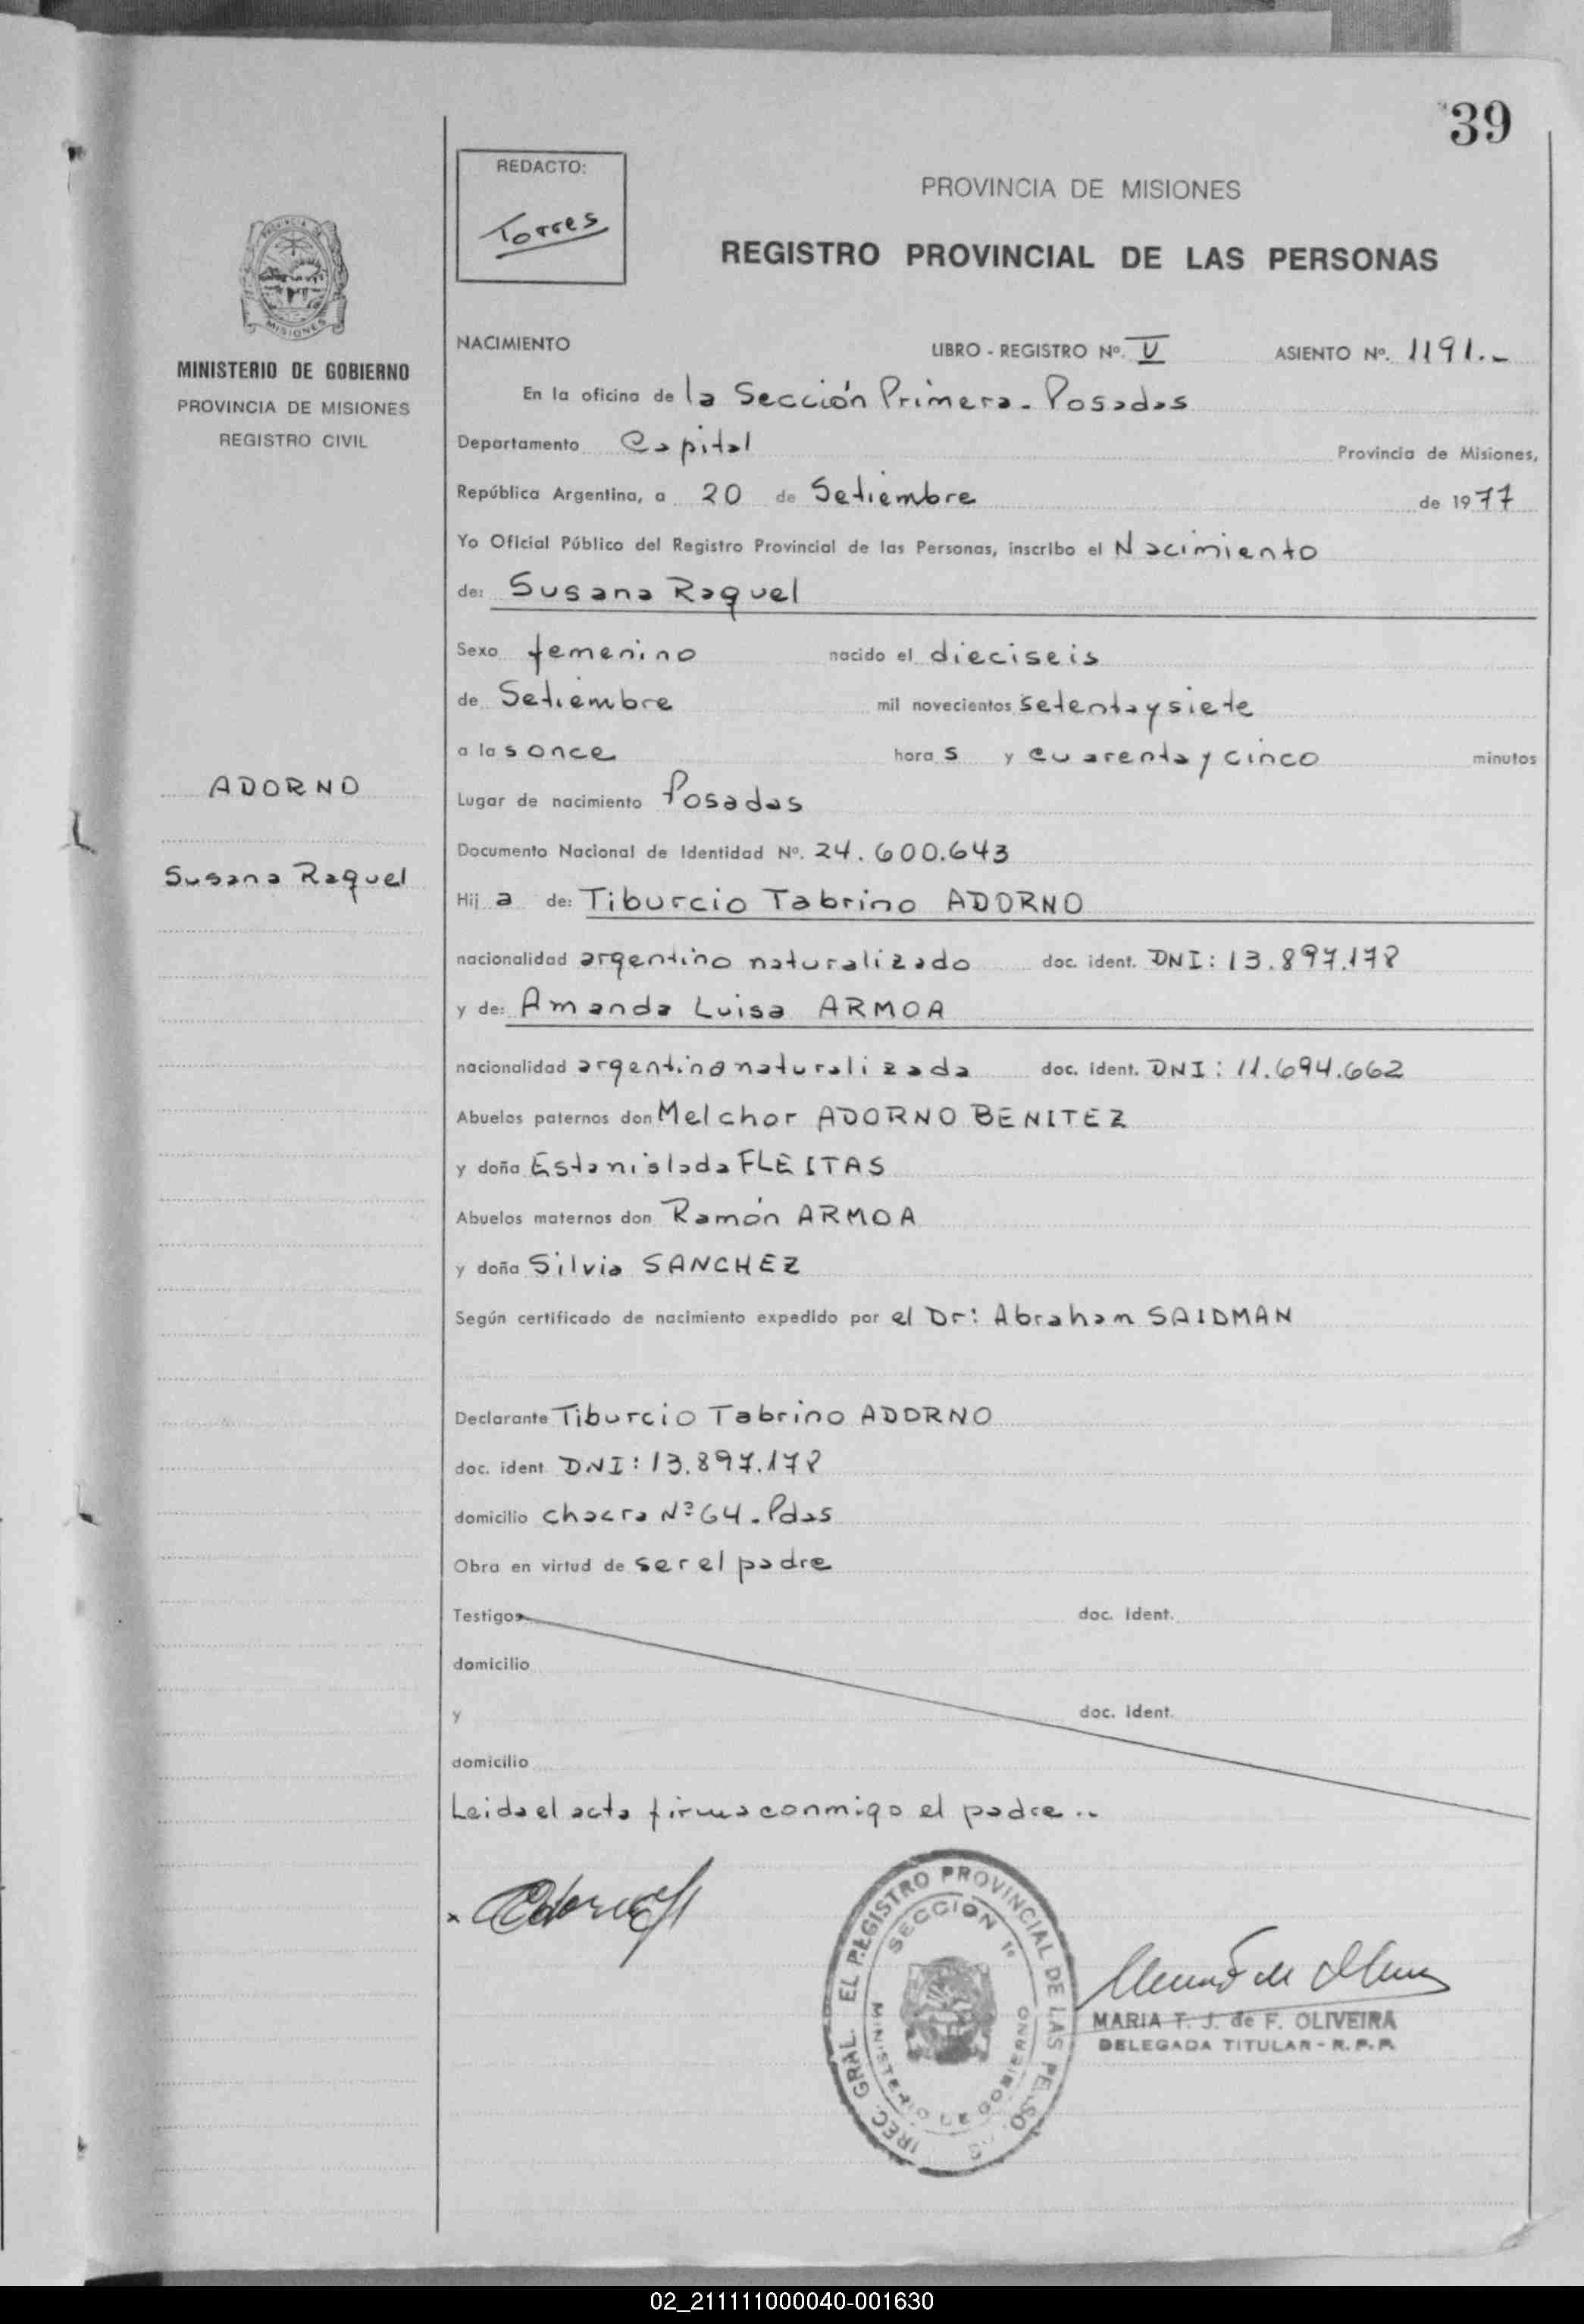 39
REDACTO:
Torres
PROVINCIA DE MISIONES
REGISTRO PROVINCIAL DE LAS PERSONAS
MISIONES
MINISTERIO DE GOBIERNO
PROVINCIA DE MISIONES
REGISTRO CIVIL
NACIMIENTO LIBRO - REGISTRO Nº. V ASIENTO Nº. 1191.-
En la oficina de la Sección Primera - Posadas
Departamento Capital Provincia de Misiones,
República Argentina, a 20 de Setiembre de 1977
Yo Oficial Público del Registro Provincial de las Personas, inscribo el Nacimiento
de: Susana Raquel
Sexo femenino nacido el dieciseis
de Setiembre mil novecientos setenta y siete
a las once horas y cuarenta y cinco minutos
ADORNO
Susana Raquel
Lugar de nacimiento Posadas
Documento Nacional de Identidad Nº. 24.600.643
Hija de: Tiburcio Tabrino ADORNO
nacionalidad argentino naturalizado doc. ident. DNI: 13.897.178
y de: Amanda Luisa ARMOA
nacionalidad argentina naturalizada doc. ident. DNI: 11.694.662
Abuelos paternos don Melchor ADORNO BENITEZ
y doña Estanislada FLEITAS
Abuelos maternos don Ramón ARMOA
y doña Silvia SANCHEZ
Según certificado de nacimiento expedido por el Dr: Abraham SAIDMAN
Declarante Tiburcio Tabrino ADORNO
doc. ident DNI: 13.897.178
domicilio chacra Nº 64. Pdas
Obra en virtud de ser el padre
Testigos doc. ident.
domicilio
y doc. ident.
domicilio
Leida el acta firma conmigo el padre..
IREC. GRAL. EL REGISTRO PROVINCIAL DE LAS PERSO
SECCION 1º
MINISTERIO DE GOBIERNO
MARIA T. J. de F. OLIVEIRA
DELEGADA TITULAR - R. P. P.
02_211111000040-001630